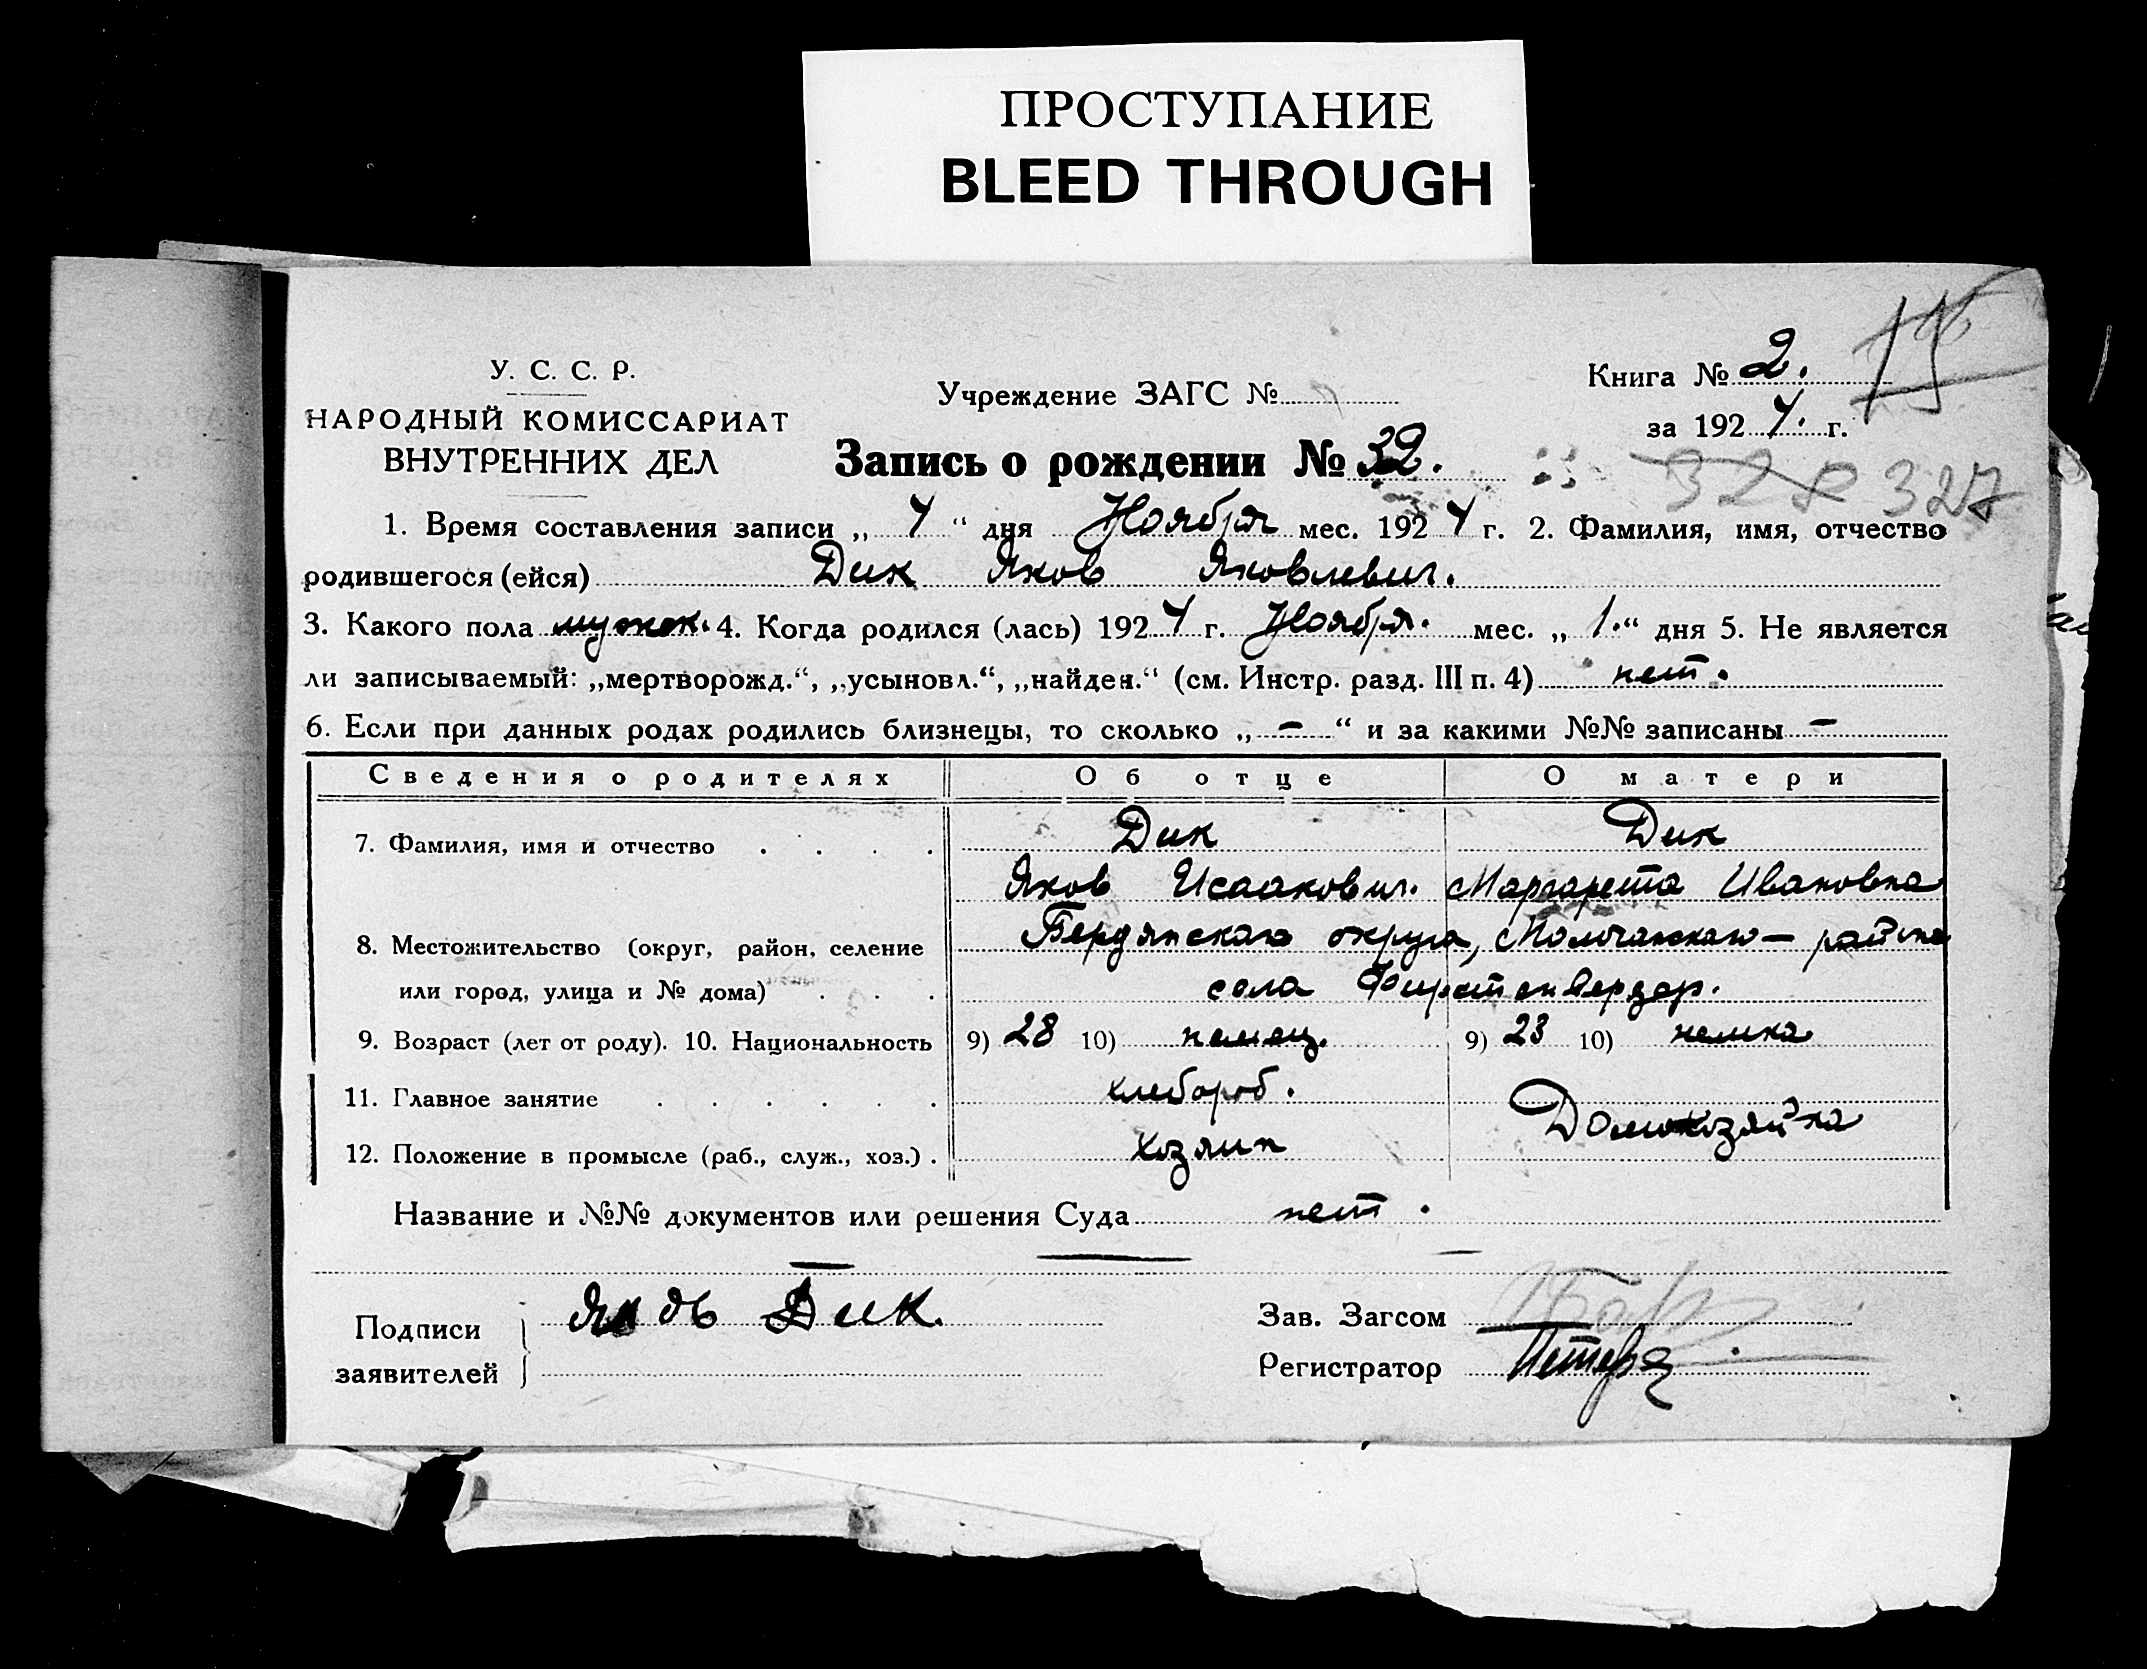 ПРОСТУПАНИЕ
BLEED THROUGH
У. С. С. Р.
НАРОДНЫЙ КОМИССАРИАТ
ВНУТРЕННИХ ДЕЛ
Учреждение ЗАГС №
Книга № 2.
за 1924 г.
Запись о рождении № 32.
328 327
1. Время составления записи „ 4 “ дня Ноября мес. 1924 г. 2. Фамилия, имя, отчество
родившегося (ейся) Дик Яков Яковлевич.
3. Какого пола мужск. 4. Когда родился (лась) 1924 г. Ноября. мес. „ 1. “ дня 5. Не является
ли записываемый: „мертворожд.“, „усыновл.“, „найден.“ (см. Инстр. разд. III п. 4) нет.
6. Если при данных родах родились близнецы, то сколько „ — “ и за какими №№ записаны —
Сведения о родителях Об отце О матери
7. Фамилия, имя и отчество . . . . Дик Дик
Яков Исаакович. Маргарета Ивановна
8. Местожительство (округ, район, селение Бердянскаго округа, Молочанскаго — района
или город, улица и № дома) . . . села Фирстенвердер.
9. Возраст (лет от роду). 10. Национальность 9) 28 10) немец. 9) 23 10) немка
11. Главное занятие . . . . . . хлебороб.
Домохозяйка
12. Положение в промысле (раб., служ., хоз.) . хозяин
Название и №№ документов или решения Суда нет.
Подписи Дик.
заявителей
Зав. Загсом
Регистратор Петерс